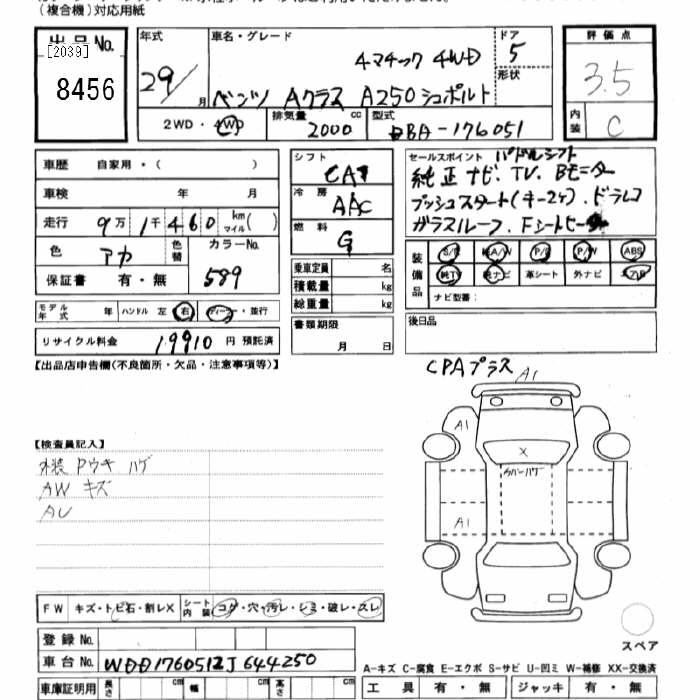 (複合機)対応用紙
出品No.
[2039]
8456
年式
29/ 月
車名・グレード
4マチック 4WD
ベンツ Aクラス A250 シュポルト
ドア
5
形状
評価点
3.5
内装
C
2WD・4WD
排気量 2000 cc
型式 DBA-176051
車歴 自家用・( )
車検 年 月
走行 9万 1千 460 km マイル( )
色 アカ 色替 カラーNo. 589
保証書 有・無
シフト CAT
冷房 AAC
燃料 G
乗車定員 名
積載量 kg
総重量 kg
書類期限
月 日
セールスポイント パドルシフト
純正ナビ.TV.Bモニター
プッシュスタート(キー2ヶ).ドラレコ
ガラスルーフ.Fシートヒーター
装備品
S/R 純A/W P/S P/W ABS
純TV 純ナビ 革シート 外ナビ エアB
ナビ型番:
後日品
モデル年式 年 ハンドル 左 右 ディーラー・並行
リサイクル料金 19910 円 預託済
【出品店申告欄(不良箇所・欠品・注意事項等)】
CPAプラス
A1
A1
X
カバーハゲ
A1
【検査員記入】
内装 Pウキ ハゲ
AW キズ
AU
FW キズ・トビ石・割レX シート内装 コゲ・穴・汚レ・シミ・破レ・スレ
登録No.
車台No. WDD1760512J644250
車庫証明用 長さ cm 幅 cm 高さ cm
スペア
A-キズ C-腐食 E-エクボ S-サビ U-凹ミ W-補修 XX-交換済
工具 有・無 ジャッキ 有・無